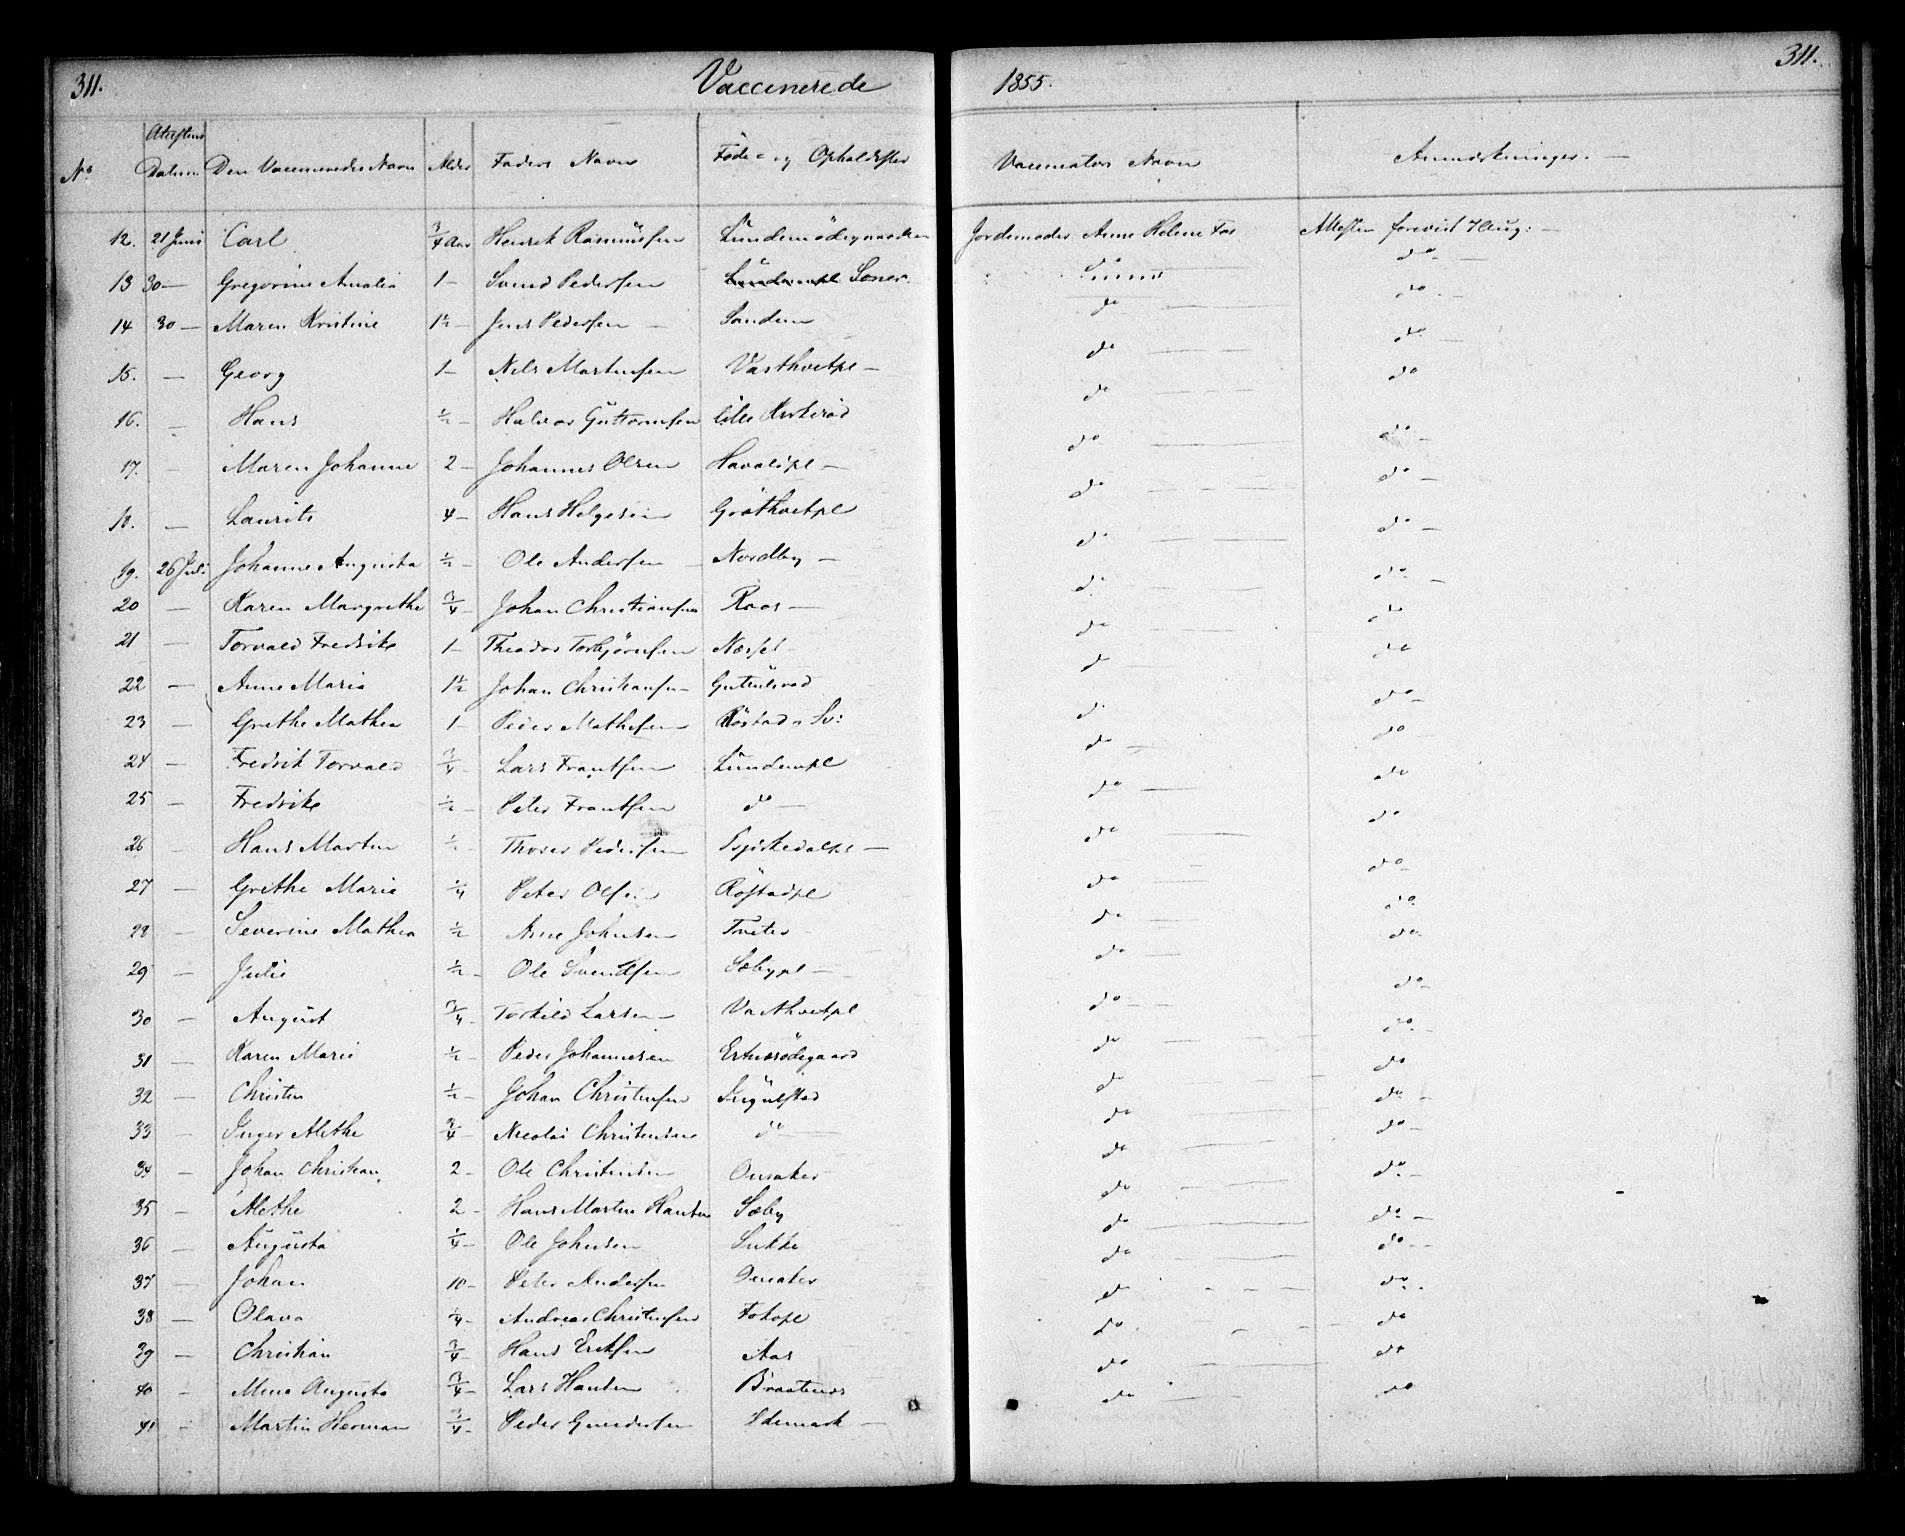 311. Vaccinerede 1855. 311.
No Attestens Datum Den Vaccineredes Navn Alder Faders Navn Føde- og Opholdssted Vaccinators Navn Anmærkninger.
12. 21 Juni Carl 3/4 Aar Henrik Rasmussen Jordemoder Anne Helene Attesten forevist 7 Aug: —
13 30 — Gregorine Amalia 1 — Svend Pedersen do —
14 30 — Maren Kristine 1 1/2 — Jens Pedersen — Sanden do — do —
15. — Georg 1 — Nils Martinsen Vasthvetpl — do — do —
16. — Hans 1/2 — Halvor Guttormsen Lille Kirkerød do — do
17. — Maren Johanne 2 — Johannes Olsen — do — do —
18. — Laurits 4 — Hans Helgesen Grøthvetpl do — do —
19. 26 Juli Johanne Augusta 1/2 — Ole Andersen — Nordby — do — do —
20 — Karen Margrethe 3/4 Johan Christiansen Roos — do — do —
21 — Torvald Fredrik 1 — Theodor Torbjørnsen Næsset — do — do
22 — Anne Maria 1 1/2 Johan Christiansen — do — do
23 — Grethe Mathea 1 — Peder Mathesen Røstad do do —
24 — Fredrik Torvald 3/4 — Lars Frantsen Lundenpl do — do —
25 — Fredrik 1/2 — Peter Frantsen do — do — do
26 Hans Martin 1/2 — Thorer Pedersen — do — do
27 — Grethe Marie 1/4 Peter Olsen Røstadpl do — do —
28 — Severine Mathea 1/2 Arne Johnsen Tveter do — do
29 — Julie 1/2 — Ole Svendsen Sæbypl — do — do
30 — August 3/4 — Torkild Larsen — Vasthvetpl do — do —
31 — Karen Marie 1/2 — Peder Johannesen do — do —
32 — Christen 1/2 — Johan Christensen Ingulstad do — do
33 — Inger Alethe 3/4 — Nicolai Christensen do — do — do —
34 — Johan Christian 2 — Ole Christensen Onsaker do — do —
35 — Alethe 2 — Hans Martin Hansen Sæby do — do —
36 — Augusta 1/4 — Ole Johnsen Sukke do — do —
37 — Johan 10 — Peter Andersen Onsaker do — do —
38 — Olava 1/4 — Andreas Christensen do — do
39 — Christian 3/4 — Hans Eriksen Aas do — do
40 — Mina Augusta 3/4 — Lars Hansen Braatenes do — do
41 — Martin Herman 3/4 — Peder Gundersen Idemark — do — do